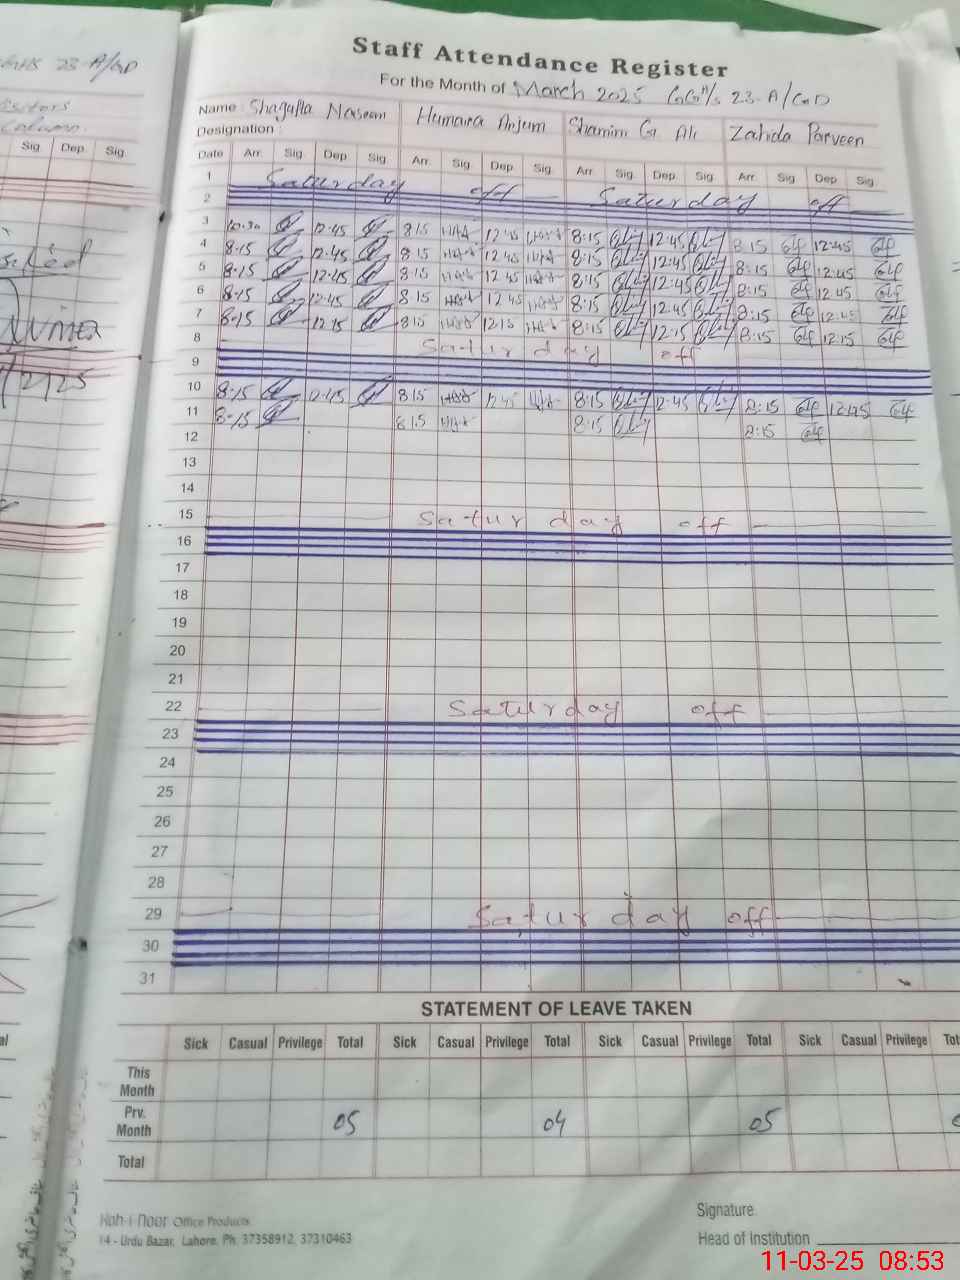 23-A/GD
Column.
Sig Dep. Sig.
Staff Attendance Register
For the Month of March 2025 GGH/S 23-A/GD
Name: Shagufta Naseem Humaira Anjum Shamim G. Ali Zahida Parveen
Designation:
Date Arr. Sig. Dep Sig. Arr. Sig Dep. Sig. Arr. Sig. Dep Sig Arr. Sig Dep Sig.
1 Saturday off Saturday off
2
3 10:30 12:45 815 1245 8:15 12:45 8:15 12:45
4 8:15 12:45 815 1245 8:15 12:45 8:15 12:45
5 8:15 12:45 815 1245 8:15 12:45 8:15 12:45
6 8:15 12:45 815 1245 8:15 12:45 8:15 12:45
7 8:15 12:15 815 1215 8:15 12:15 8:15 12:15
8 Saturday off
9
10 8:15 12:45 815 1245 8:15 12:45 8:15 12:45
11 8:15 815 8:15 8:15
12
13
14
15 Saturday off
16
17
18
19
20
21
22 Saturday off
23
24
25
26
27
28
29 Saturday off
30
31
STATEMENT OF LEAVE TAKEN
Sick Casual Privilege Total Sick Casual Privilege Total Sick Casual Privilege Total Sick Casual Privilege
This
Month
Prv.
Month 05 04 05
Total
Koh-i-noor Office Products
14 - Urdu Bazar, Lahore. Ph. 37358912, 37310463
Signature
Head of Institution
11-03-25 08:53